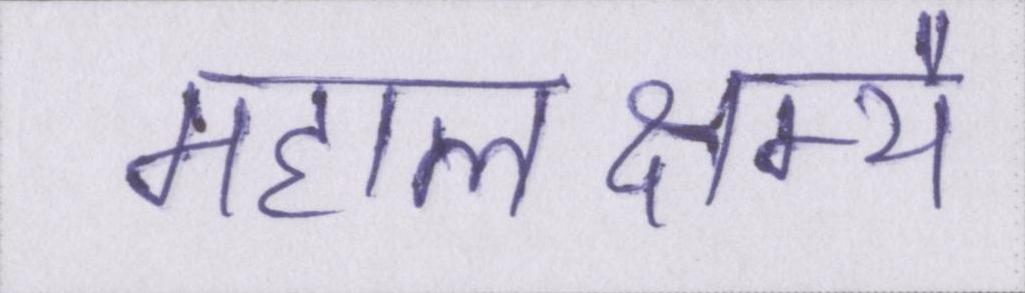 महालक्षम्यै